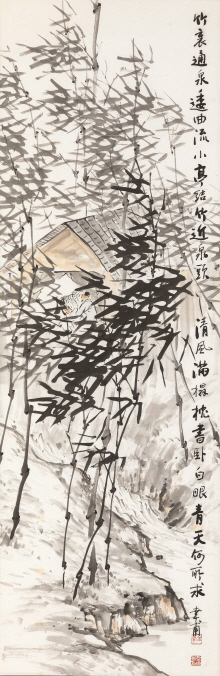 竹裏通泉逶曲流小亭結竹近泉頭清風滿榻枕書臥白眼青天何所求